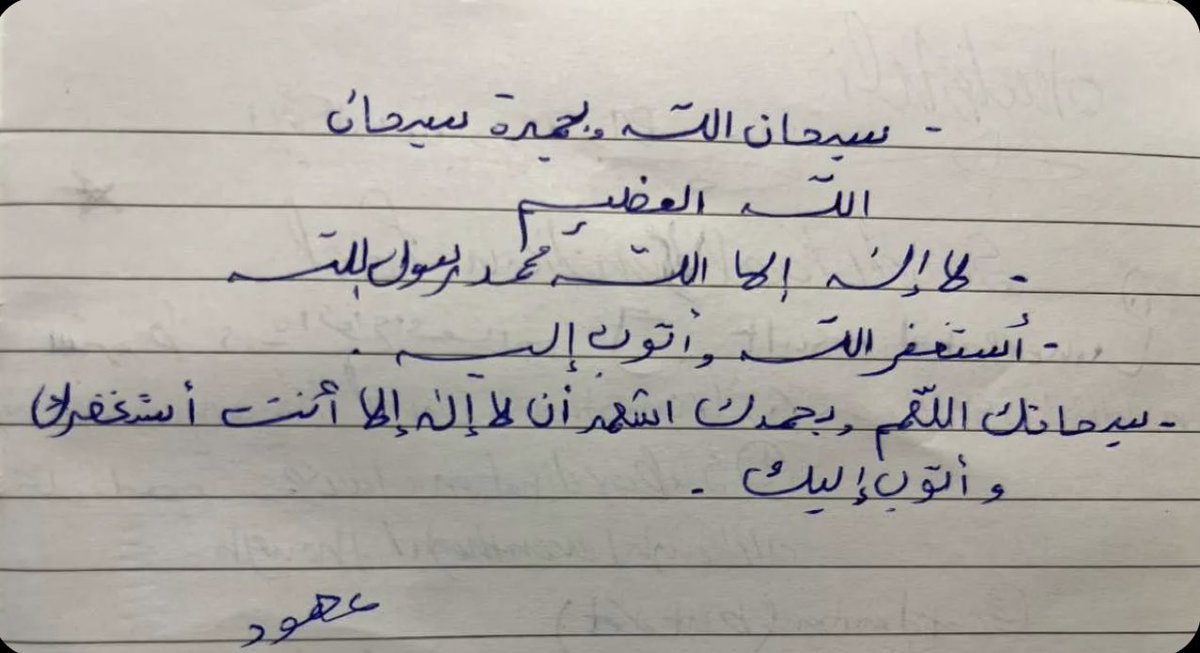 - سبحان الله وبحمدة سبحان
الله العظيم
- لا إله إلا الله محمد رسول الله
- أستغفر الله وأتوب إليه .
- سبحانك اللهم وبحمدك اشهد أن لا إله إلا أنت أستغفرك
وأتوب إليك .
عهود